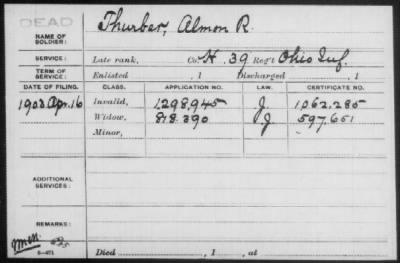 DEAD
Thurber, Almon R.
NAME OF SOLDIER:
SERVICE: Late rank, Co. H. 39 Reg't Ohio Inf.
TERM OF SERVICE: Enlisted , 1 Discharged , 1
DATE OF FILING. CLASS. APPLICATION NO. LAW. CERTIFICATE NO.
1903 Apr. 16 Invalid, 1,298,945 J. 1,062,285
Widow, 818.390 J. 597.651
Minor,
ADDITIONAL SERVICES:
REMARKS:
3-471
Died , 1 , at